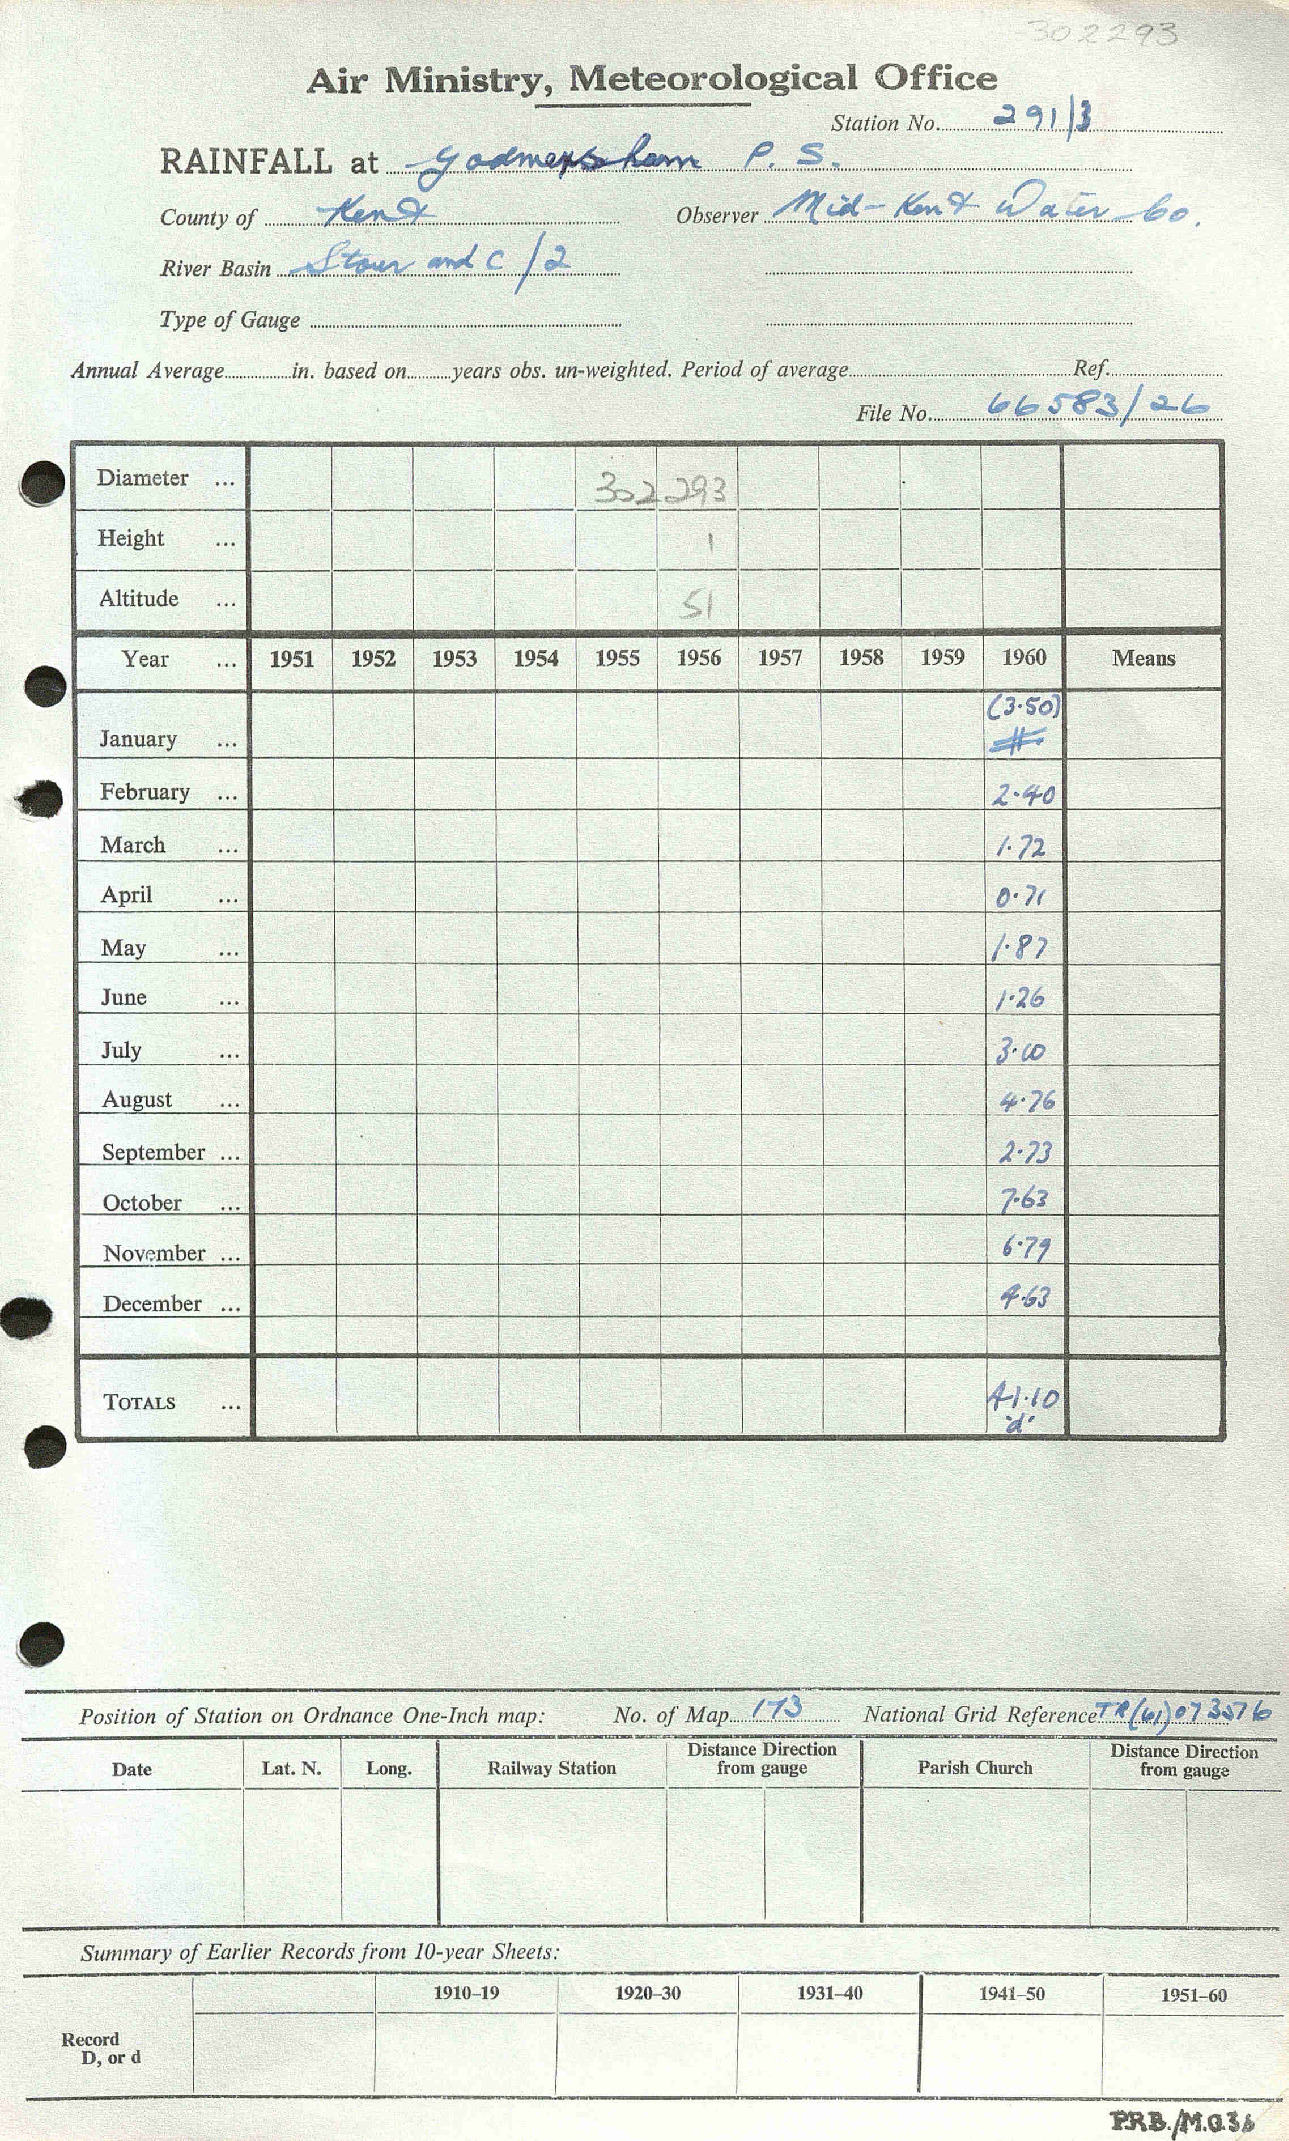 302293
Air Ministry, Meteorological Office
Station No. 291/3
RAINFALL at Godmersham P. S.
County of Kent Observer Mid-Kent Water Co.
River Basin Stour and C /2
Type of Gauge
Annual Average in. based on years obs. un-weighted. Period of average Ref.
File No. 66583/26
Diameter ... 302 293
Height ... 1
Altitude ... 51
Year ... 1951 1952 1953 1954 1955 1956 1957 1958 1959 1960 Means
(3.50)
January ...
February ... 2.40
March ... 1.72
April ... 0.71
May ... 1.87
June ... 1.26
July ... 3.10
August ... 4.76
September ... 2.73
October ... 7.63
November ... 6.79
December ... 4.63
TOTALS ... 41.10
'd'
Position of Station on Ordnance One-Inch map: No. of Map 173 National Grid Reference TR(61)073576
Date Lat. N. Long. Railway Station Distance Direction from gauge Parish Church Distance Direction from gauge
Summary of Earlier Records from 10-year Sheets:
1910–19 1920–30 1931–40 1941–50 1951–60
Record
D, or d
PRB./M.O.36